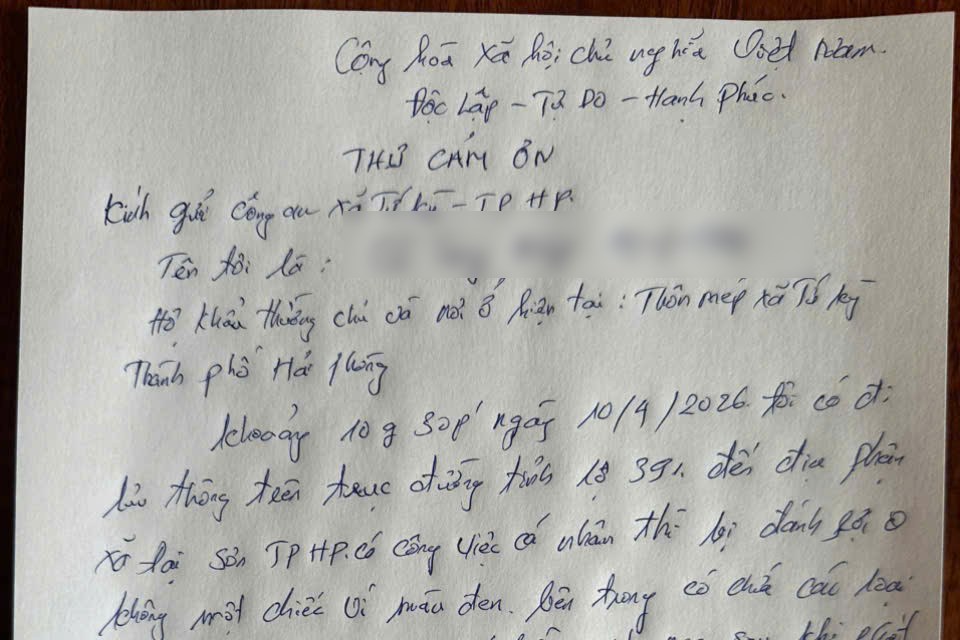 Cộng hòa xã hội chủ nghĩa Việt Nam.
Độc Lập - Tự Do - Hạnh Phúc.
THƯ CẢM ƠN
Kính gửi công an xã Tứ kỳ - TP HP.
Tên tôi là :
Hộ khẩu thường chú và nơi ở hiện tại : Thôn mép xã Tứ kỳ
Thành phố Hải Phòng
khoảng 10 g 30p' ngày 10/4/2026. tôi có đi
lưu thông trên trục đường tỉnh lộ 391. đến địa phận
xã đại sơn TP HP. có công việc cá nhân thì bị đánh rơi
không một chiếc ví màu đen. bên trong có chứa các loại
sau khi phát